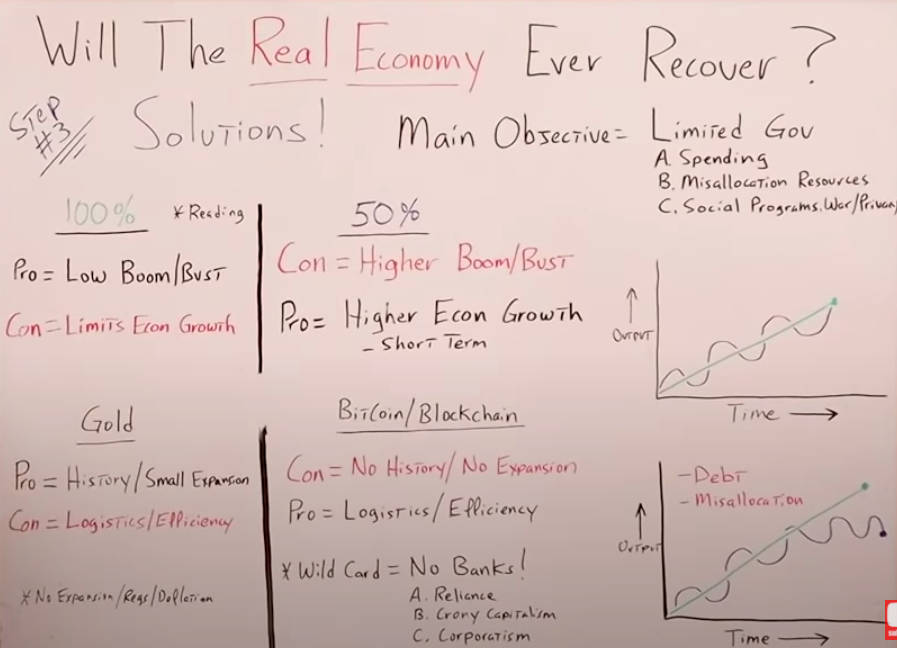 Will The Real Economy Ever Recover?
Step #3
Solutions!
Main Objective = Limited Gov
A. Spending
B. Misallocation Resources
C. Social Programs, War/Privacy
100%
* Reading
Pro = Low Boom/Bust
Con = Limits Econ Growth
50%
Con = Higher Boom/Bust
Pro = Higher Econ Growth
- Short Term
Output
Time
Gold
Pro = History/Small Expansion
Con = Logistics/Efficiency
* No Expansion/Regs/Deflation
Bitcoin/Blockchain
Con = No History/No Expansion
Pro = Logistics/Efficiency
* Wild Card = No Banks!
A. Reliance
B. Crony Capitalism
C. Corporatism
- Debt
- Misallocation
Output
Time